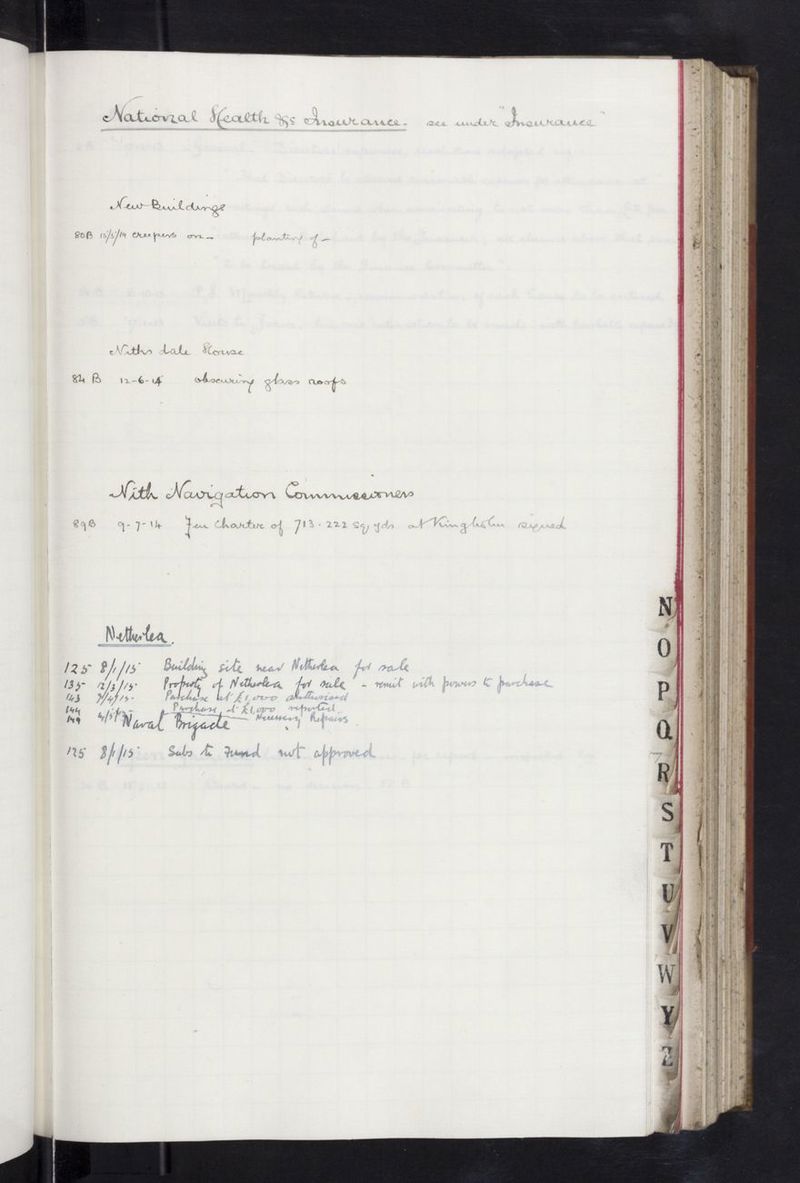 National Health &c Insurance. see under "Insurance"
New Buildings
80B 15/5/14 creepers on - planting of -
Nithsdale House
84 B 12-6-14 obscuring glass roofs
Nith Navigation Commissioners
89B 9-7-14 Feu Charter of 713.222 sq yds at Kingholm signed
Netherlea.
125 8/1/15 Building site near Netherlea for sale
135 12/3/15 Property of Netherlea for sale - remit with powers to purchase
143 7/4/15 Purchase at £1,000 authorised
144 Purchase at £1,000 reported
149 4/5/15 Necessary Repairs
Naval Brigade
125 8/1/15 Subs to Fund not approved
N
O
P
Q
R
S
T
U
V
W
Y
Z